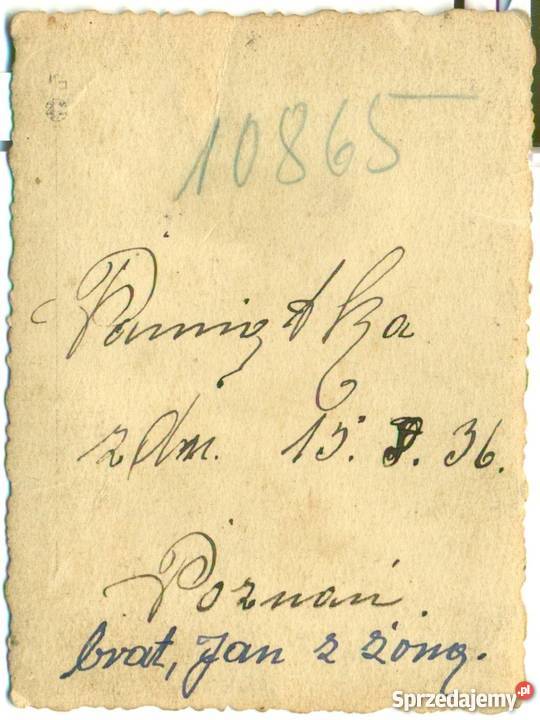 10865
Pamiątka
z dn. 15. 36.
Poznań.
brat, Jan z żoną.
Sprzedajemy.pl